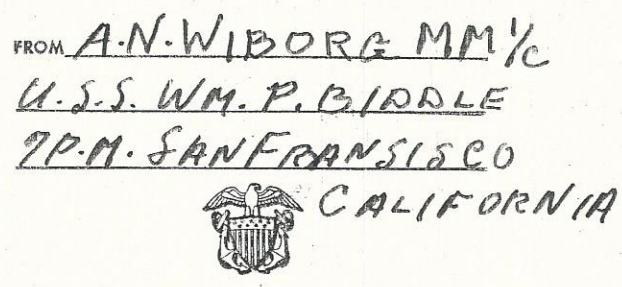 FROM A.N. WIBORG MM 1/C
U.S.S. WM. P. BIDDLE
7P.M. SANFRANSISCO
CALIFORNIA